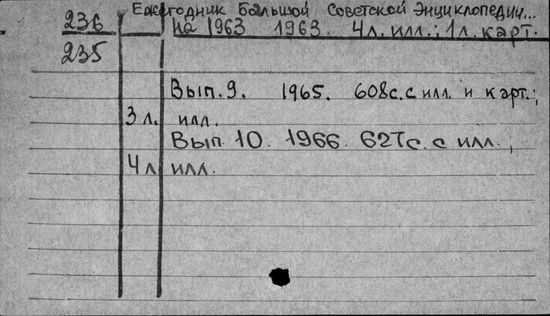 Ежегодник Большой Советской Энциклопедич...
236 на 1963 1963. 4 л. илл.; 1 л. карт.
235
Вып. 9. 1965. 608 с. с илл. и карт.;
3 л. илл.
Вып. 10. 1966. 627 с. с илл.,
4 л илл.